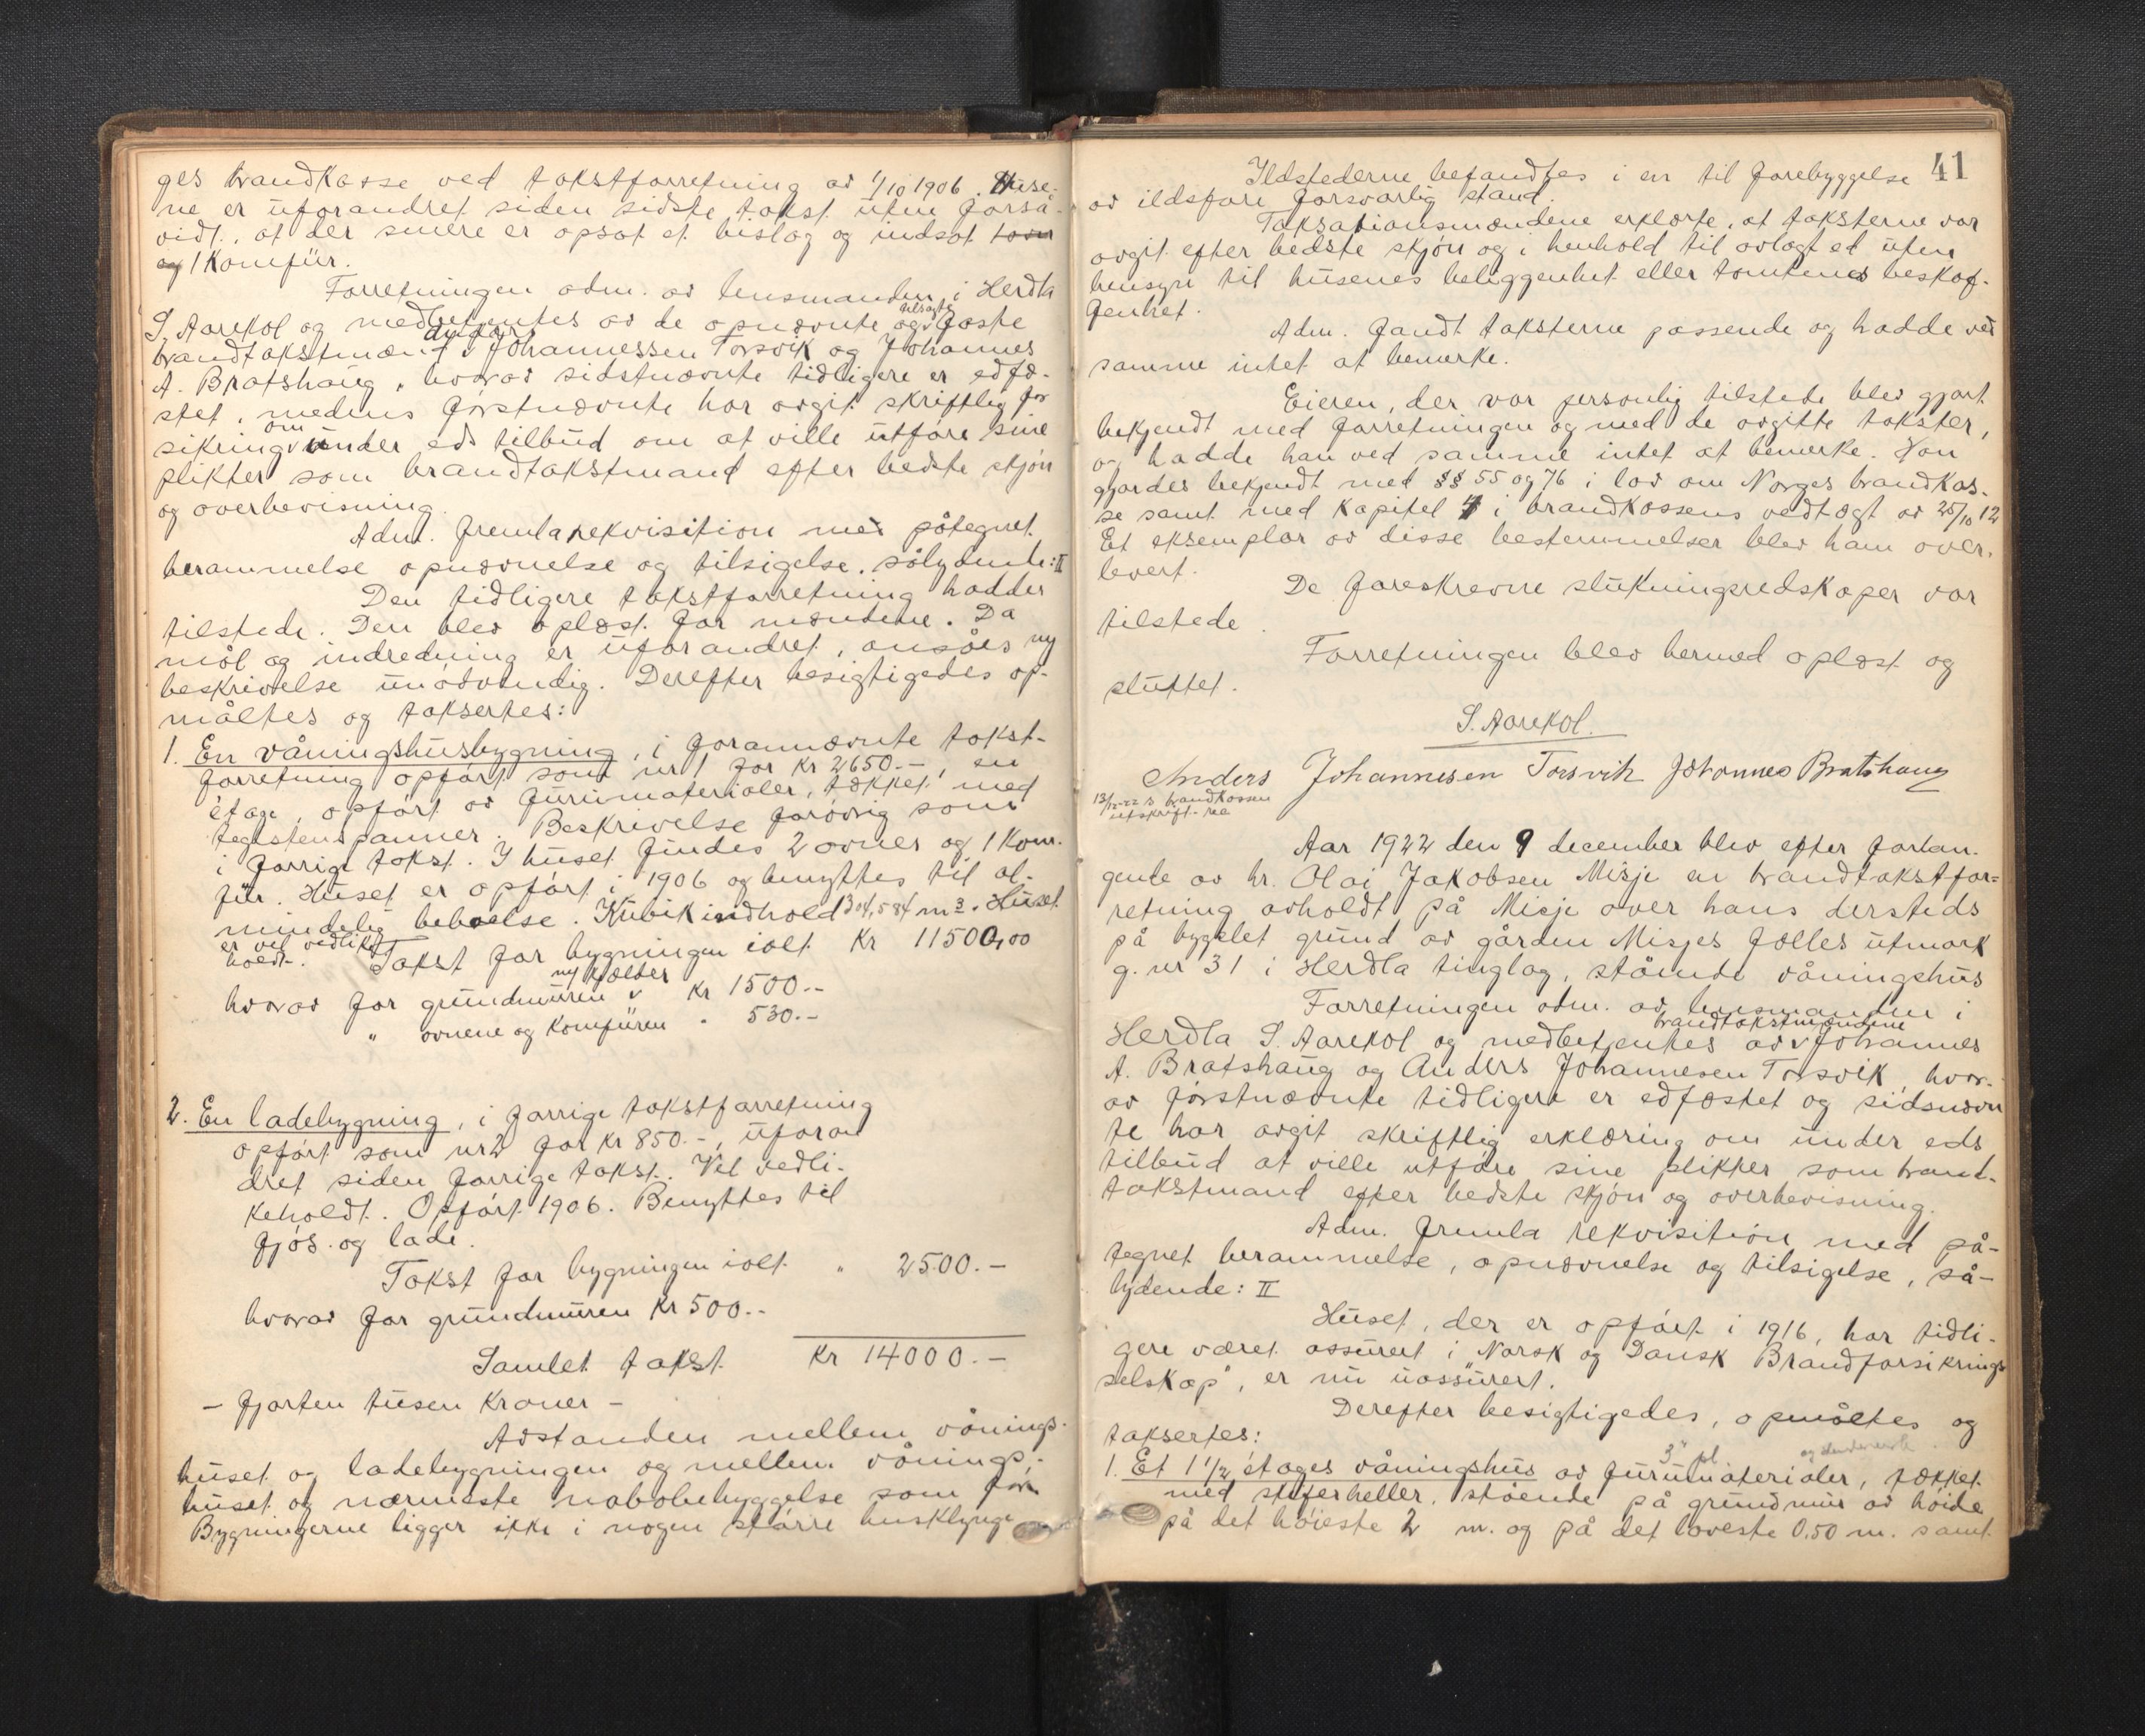 ges brandkasse ved takstforretning av 1/10 1906. Huse-
ne er uforandret siden sidste takst uten forså-
vidt, at der senere er opsat et bislag og indsat
1 Komfür.
Forretningen adm. av lensmanden i Herdla
S. Aarekol og medbetjentes av de opnævnte og tilsagte faste
brandtakstmænd Anders Johannessen Torsvik og Johannes
A. Bratshaug, hvorav sidstnævnte tidligere er edfæ-
stet, medens førstnævnte har avgit skriftlig for
sikring om under eds tilbud om at ville utføre sine
plikter som brandtakstmand efter bedste skjøn
og overbevisning.
Adm. fremla rekvisition med påtegnet
berammelse opnævnelse og tilsigelse, sålydende: II
Den tidligere takstforretning haddes
tilstede. Den blev oplæst for mændene. Da
mål og indredning er uforandret, ansåes ny
beskrivelse unødvendig. Derefter besigtigedes op-
måltes og taksertes:
1. En våningshusbygning, i forannævnte takst-
forretning opført som nr 1 for kr 2650.-, en
etage, opført av furumaterialer, tækket med
teglstenspanner. Beskrivelse forøvrig som
i forrige takst. I huset findes 2 ovner og 1 kom-
für. Huset er opført i 1906 og benyttes til al-
mindelig beboelse. Kubikindhold 304,584 m3. Huset
er vel vedlike
holdt. Takst for bygningen ialt Kr 11500,00
hvorav for grundmuren ny kjælder Kr 1500.--
" ovnene og komfüren " 530.--
2. En ladebygning, i forrige takstforretning
opført som nr 2 for kr 850.-, uforan
dret siden forrige takst. Vel vedli-
keholdt. Opført 1906. Benyttes til
fjøs og lade.
Takst for bygningen ialt " 2500.-
hvorav for grundmuren Kr 500.--
Samlet takst Kr 14000.-
- fjorten tusen kroner -
Avstanden mellem vånings-
huset og ladebygningen og mellem vånings-
huset og nærmeste nabobebyggelse som før.
Bygningerne ligger ikke i nogen større husklynge
41
Ildstederne befandtes i en til forebyggelse
av ildsfare forsvarlig stand.
Taksationsmændene erklærte, at taksterne var
avgit efter bedste skjøn og i henhold til avlagt ed uten
hensyn til husenes beliggenhet eller tomtenes beskaf-
fenhet.
Adm. fandt taksterne passende og hadde ved
samme intet at bemerke.
Eieren, der var personlig tilstede blev gjort
bekjendt med forretningen og med de avgitte takster,
og hadde han ved samme intet at bemerke. Han
gjordes bekjendt med §§ 55 og 76 i lov om Norges brandkas-
se samt med kapitel 4 i brandkassens vedtægt av 25/10 12
Et eksemplar av disse bestemmelser blev ham over-
levert.
De foreskrevne slukningsredskaper var
tilstede.
Forretningen blev hermed oplæst og
sluttet.
S. Aarekol.
Anders Johannesen Torsvik Johannes Bratshaug
13/12-22 s brandkassen
utskrift
Aar 1922 den 9 december blev efter forlan-
gende av hr. Olai Jakobsen Misje en brandtakstfor-
retning avholdt på Misje over hans dersteds
på bygslet grund av gården Misjes fælles utmark
g. nr 31 i Herdla tinglag, stående våningshus
Forretningen adm. av lensmanden i
Herdla S. Aarekol og medbetjentes av brandtakstmændene Johannes
A. Bratshaug og Anders Johannesen Torsvik, hvor-
av førstnævnte tidligere er edfæstet og sidsnævn
te har avgit skriftlig erklæring om under eds
tilbud at ville utføre sine plikter som brand-
takstmand efter bedste skjøn og overbevisning.
Adm. fremla rekvisition med på-
tegnet berammelse, opnævnelse og tilsigelse, så-
lydende: II
Huset, der er opført i 1916, har tidli-
gere været assurert i "Norsk og Dansk Brandforsikrings
selskap", er nu uassurert.
Derefter besigtigedes, opmåltes og
taksertes:
1. Et 1 1/2 etages våningshus av 3" pl furumaterialer, tækket
med skiferheller, stående på grundmur av høide
på det høieste 2 m. og på det laveste 0,50 m. samt